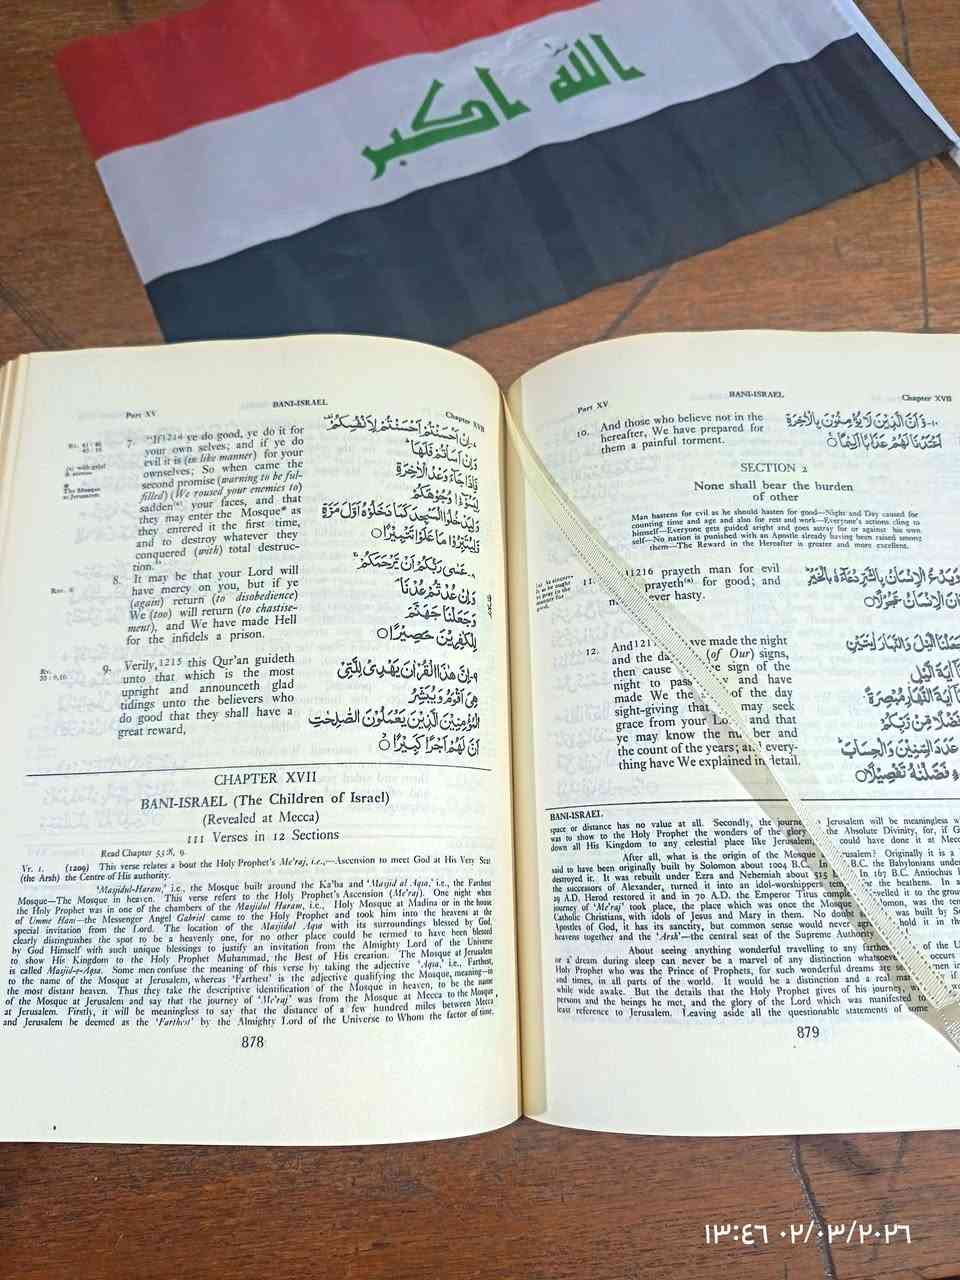 الله اكبر
Part XV
BANI-ISRAEL
Chapter XVII
7. "If 1214 ye do good, ye do it for
your own selves; and if ye do
evil it is (in like manner) for your
ownselves; So when came the
second promise (warning to be ful-
filled) (We roused your enemies to)
sadden(a) your faces, and that
they may enter the Mosque* as
they entered it the first time,
and to destroy whatever they
conquered (with) total destruc-
tion."
8. It may be that your Lord will
have mercy on you, but if ye
(again) return (to disobedience)
We (too) will return (to chastise-
ment), and We have made Hell
for the infidels a prison.
9. Verily, 1215 this Qur'an guideth
unto that which is the most
upright and announceth glad
tidings unto the believers who
do good that they shall have a
great reward,
(a) with grief
The Mosque
at Jerusalem
إِنْ أَحْسَنْتُمْ أَحْسَنْتُمْ لِأَنْفُسِكُمْ
وَإِنْ أَسَأْتُمْ فَلَهَا
فَإِذَا جَاءَ وَعْدُ الْآخِرَةِ
لِيَسُوءُوا وُجُوهَكُمْ
وَلِيَدْخُلُوا الْمَسْجِدَ كَمَا دَخَلُوهُ أَوَّلَ مَرَّةٍ
وَلِيُتَبِّرُوا مَا عَلَوْا تَتْبِيرًا
عَسَى رَبُّكُمْ أَنْ يَرْحَمَكُمْ
وَإِنْ عُدْتُمْ عُدْنَا
وَجَعَلْنَا جَهَنَّمَ
لِلْكَافِرِينَ حَصِيرًا
٩- إِنَّ هَذَا الْقُرْآنَ يَهْدِي لِلَّتِي
هِيَ أَقْوَمُ وَيُبَشِّرُ
الْمُؤْمِنِينَ الَّذِينَ يَعْمَلُونَ الصَّالِحَاتِ
أَنَّ لَهُمْ أَجْرًا كَبِيرًا
CHAPTER XVII
BANI-ISRAEL (The Children of Israel)
(Revealed at Mecca)
111 Verses in 12 Sections
Read Chapter 53:8, 9.
Vr. 1. (1209) This verse relates a bout the Holy Prophet's Me'raj, i.e.,—Ascension to meet God at His Very Seat
(the Arsh) the Centre of His authority.
'Masjidul-Haram,' i.e., the Mosque built around the Ka'ba and 'Masjid al Aqsa,' i.e., the Farthest
Mosque—The Mosque in heaven. This verse refers to the Holy Prophet's Ascension (Me'raj). One night when
the Holy Prophet was in one of the chambers of the Masjidul Haram, i.e., Holy Mosque at Madina or in the house
of Umme Hani—the Messenger Angel Gabriel came to the Holy Prophet and took him into the heavens at the
special invitation from the Lord. The location of the Masjidal Aqsa with its surroundings blessed by God,
clearly distinguishes the spot to be a heavenly one, for no other place could be termed to have been blessed
by God Himself with such unique blessings to justify an invitation from the Almighty Lord of the Universe
to show His Kingdom to the Holy Prophet Muhammad, the Best of His creation. The Mosque at Jerusalem
is called Masjid-e-Aqsa. Some men confuse the meaning of this verse by taking the adjective 'Aqsa,' i.e., Farthest,
to the name of the Mosque at Jerusalem, whereas 'Farthest' is the adjective qualifying the Mosque, meaning—in
the most distant heaven. Thus they take the descriptive identification of the Mosque in heaven, to be the name
of the Mosque at Jerusalem and say that the journey of 'Me'raj' was from the Mosque at Mecca to the Mosque
at Jerusalem. Firstly, it will be meaningless to say that the distance of a few hundred miles between Mecca
and Jerusalem be deemed as the 'Farthest' by the Almighty Lord of the Universe to Whom the factor of time,
878
Part XV
BANI-ISRAEL
Chapter XVII
10. And those who believe not in the
hereafter, We have prepared for
them a painful torment.
١٠- وَأَنَّ الَّذِينَ لَا يُؤْمِنُونَ بِالْآخِرَةِ
أَعْتَدْنَا لَهُمْ عَذَابًا أَلِيمًا
SECTION 2
None shall bear the burden
of other
Man hastens for evil as he should hasten for good—Night and Day caused for
counting time and age and also for rest and work—Everyone's actions cling to
himself—Everyone gets guided aright and goes astray for or against his own
self—No nation is punished with an Apostle already having been raised among
them—The Reward in the Hereafter is greater and more excellent.
11. 1216 prayeth man for evil
prayeth(a) for good; and
ever hasty.
وَيَدْعُ الْإِنْسَانُ بِالشَّرِّ دُعَاءَهُ بِالْخَيْرِ
الْإِنْسَانُ عَجُولًا
12. And we made the night
and the da (of Our) signs,
then cause e sign of the
night to pass and have
made We the of the day
sight-giving that may seek
grace from your Lo and that
ye may know the nu ber and
the count of the years; and every-
thing have We explained in detail.
اللَّيْلَ وَالنَّهَارَ آيَتَيْنِ
آيَةَ اللَّيْلِ
آيَةَ النَّهَارِ مُبْصِرَةً
فَضْلًا مِنْ رَبِّكُمْ
عَدَدَ السِّنِينَ وَالْحِسَابَ
فَصَّلْنَاهُ تَفْصِيلًا
BANI-ISRAEL.
space or distance has no value at all. Secondly, the journe Jerusalem will be meaningless
was to show to the Holy Prophet the wonders of the glory the Absolute Divinity, for, if G
down all His Kingdom to any celestial place like Jerusalem, could have done it at Mecc
After all, what is the origin of the Mosque rusalem? Originally it is a
said to have been originally built by Solomon about 1004 B.C. In B.C. the Babylonians under
destroyed it. It was rebuilt under Ezra and Nehemiah about 515 In 167 B.C. Antiochus
the successors of Alexander, turned it into an idol-worshippers tem the heathens. In
29 A.D. Herod restored it and in 70 A.D. the Emperor Titus comple velled it to the grou
journey of 'Me'raj' took place, the place which was once the Mosque olomon, was the
Catholic Christians, with idols of Jesus and Mary in them. No doubt was built by
Apostles of God, it has its sanctity, but common sense would never agre hold it in the
heavens together and the 'Arsh'—the central seat of the Supreme Authority
About seeing anything wonderful travelling to any farthes of the U
or a dream during sleep can never be a marvel of any distinction whatsoeve occurs
Holy Prophet who was the Prince of Prophets, for such wonderful dreams are se men in
and times, in all parts of the world. It would be a distinction and a real mar
while wide awake. But the details that the Holy Prophet gives of his journey,
persons and the beings he met, and the glory of the Lord which was manifested to
least reference to Jerusalem. Leaving aside all the questionable statements of some
879
١٣:٤٦ ٠٢/٠٣/٢٠٢٦